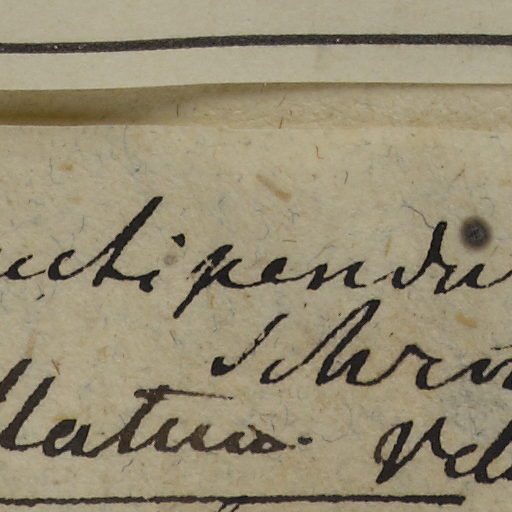 uctipendu
Schr
llatum. Vel